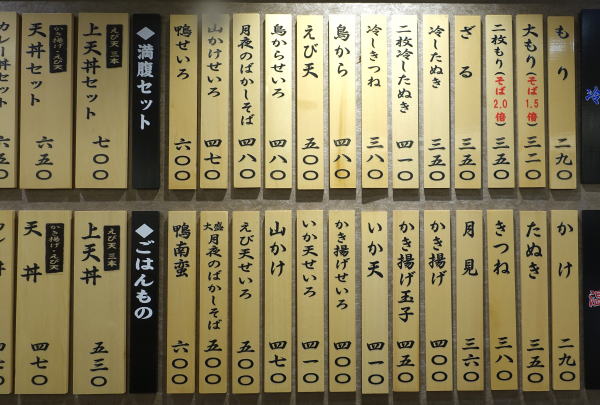 冷
もり 二九〇
大もり(そば1.5倍) 三二〇
二枚もり(そば2.0倍) 三五〇
ざる 三五〇
冷したぬき 三五〇
二枚冷したぬき 四一〇
冷しきつね 三八〇
鳥から 四八〇
えび天 五〇〇
鳥からせいろ 四八〇
月夜のばかしそば 四八〇
山かけせいろ 四七〇
鴨せいろ 六〇〇
◆満腹セット
えび天 三本
上天丼セット 七〇〇
かき揚げ・えび天
天丼セット 六五〇
カレー丼セット 六五〇
温
かけ 二九〇
たぬき 三五〇
きつね 三八〇
月見 三六〇
かき揚げ 四〇〇
かき揚げ玉子 四五〇
いか天 四一〇
かき揚げせいろ 四〇〇
いか天せいろ 四一〇
山かけ 四七〇
えび天せいろ 五〇〇
大盛 月夜のばかしそば 五〇〇
鴨南蛮 六〇〇
◆ごはんもの
えび天 三本
上天丼 五三〇
かき揚げ・えび天
天丼 四八〇